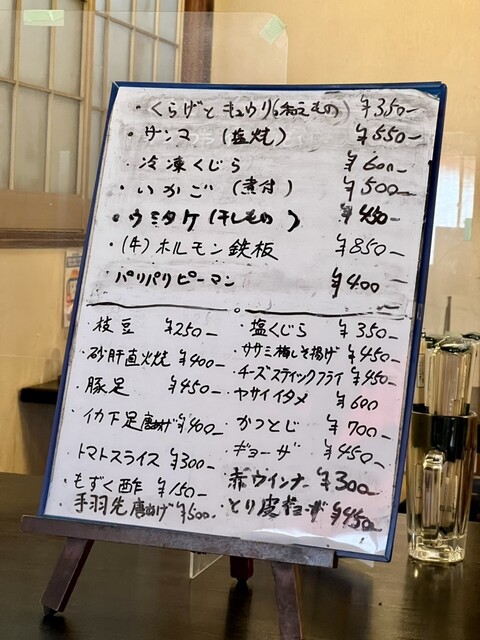 ・くらげとキュウリ(和えもの) ¥350-
・サンマ (塩焼) ¥550-
・冷凍くじら ¥600-
・いかご (煮付) ¥500-
・ウミタケ(干しもの) ¥450-
・(牛)ホルモン鉄板 ¥850-
・パリパリピーマン ¥400
・枝豆 ¥250-
・砂肝直火焼 ¥400-
・豚足 ¥450-
・イカ下足唐揚げ ¥400-
・トマトスライス ¥300-
・もずく酢 ¥150-
・手羽先唐揚げ ¥500-
・塩くじら ¥350-
・ササミ梅しそ揚げ ¥450-
・チーズスティックフライ ¥450-
・ヤサイイタメ ¥600
・かつとじ ¥700-
・ギョーザ ¥450-
・赤ウインナー ¥300-
・とり皮ギョーザ ¥450-